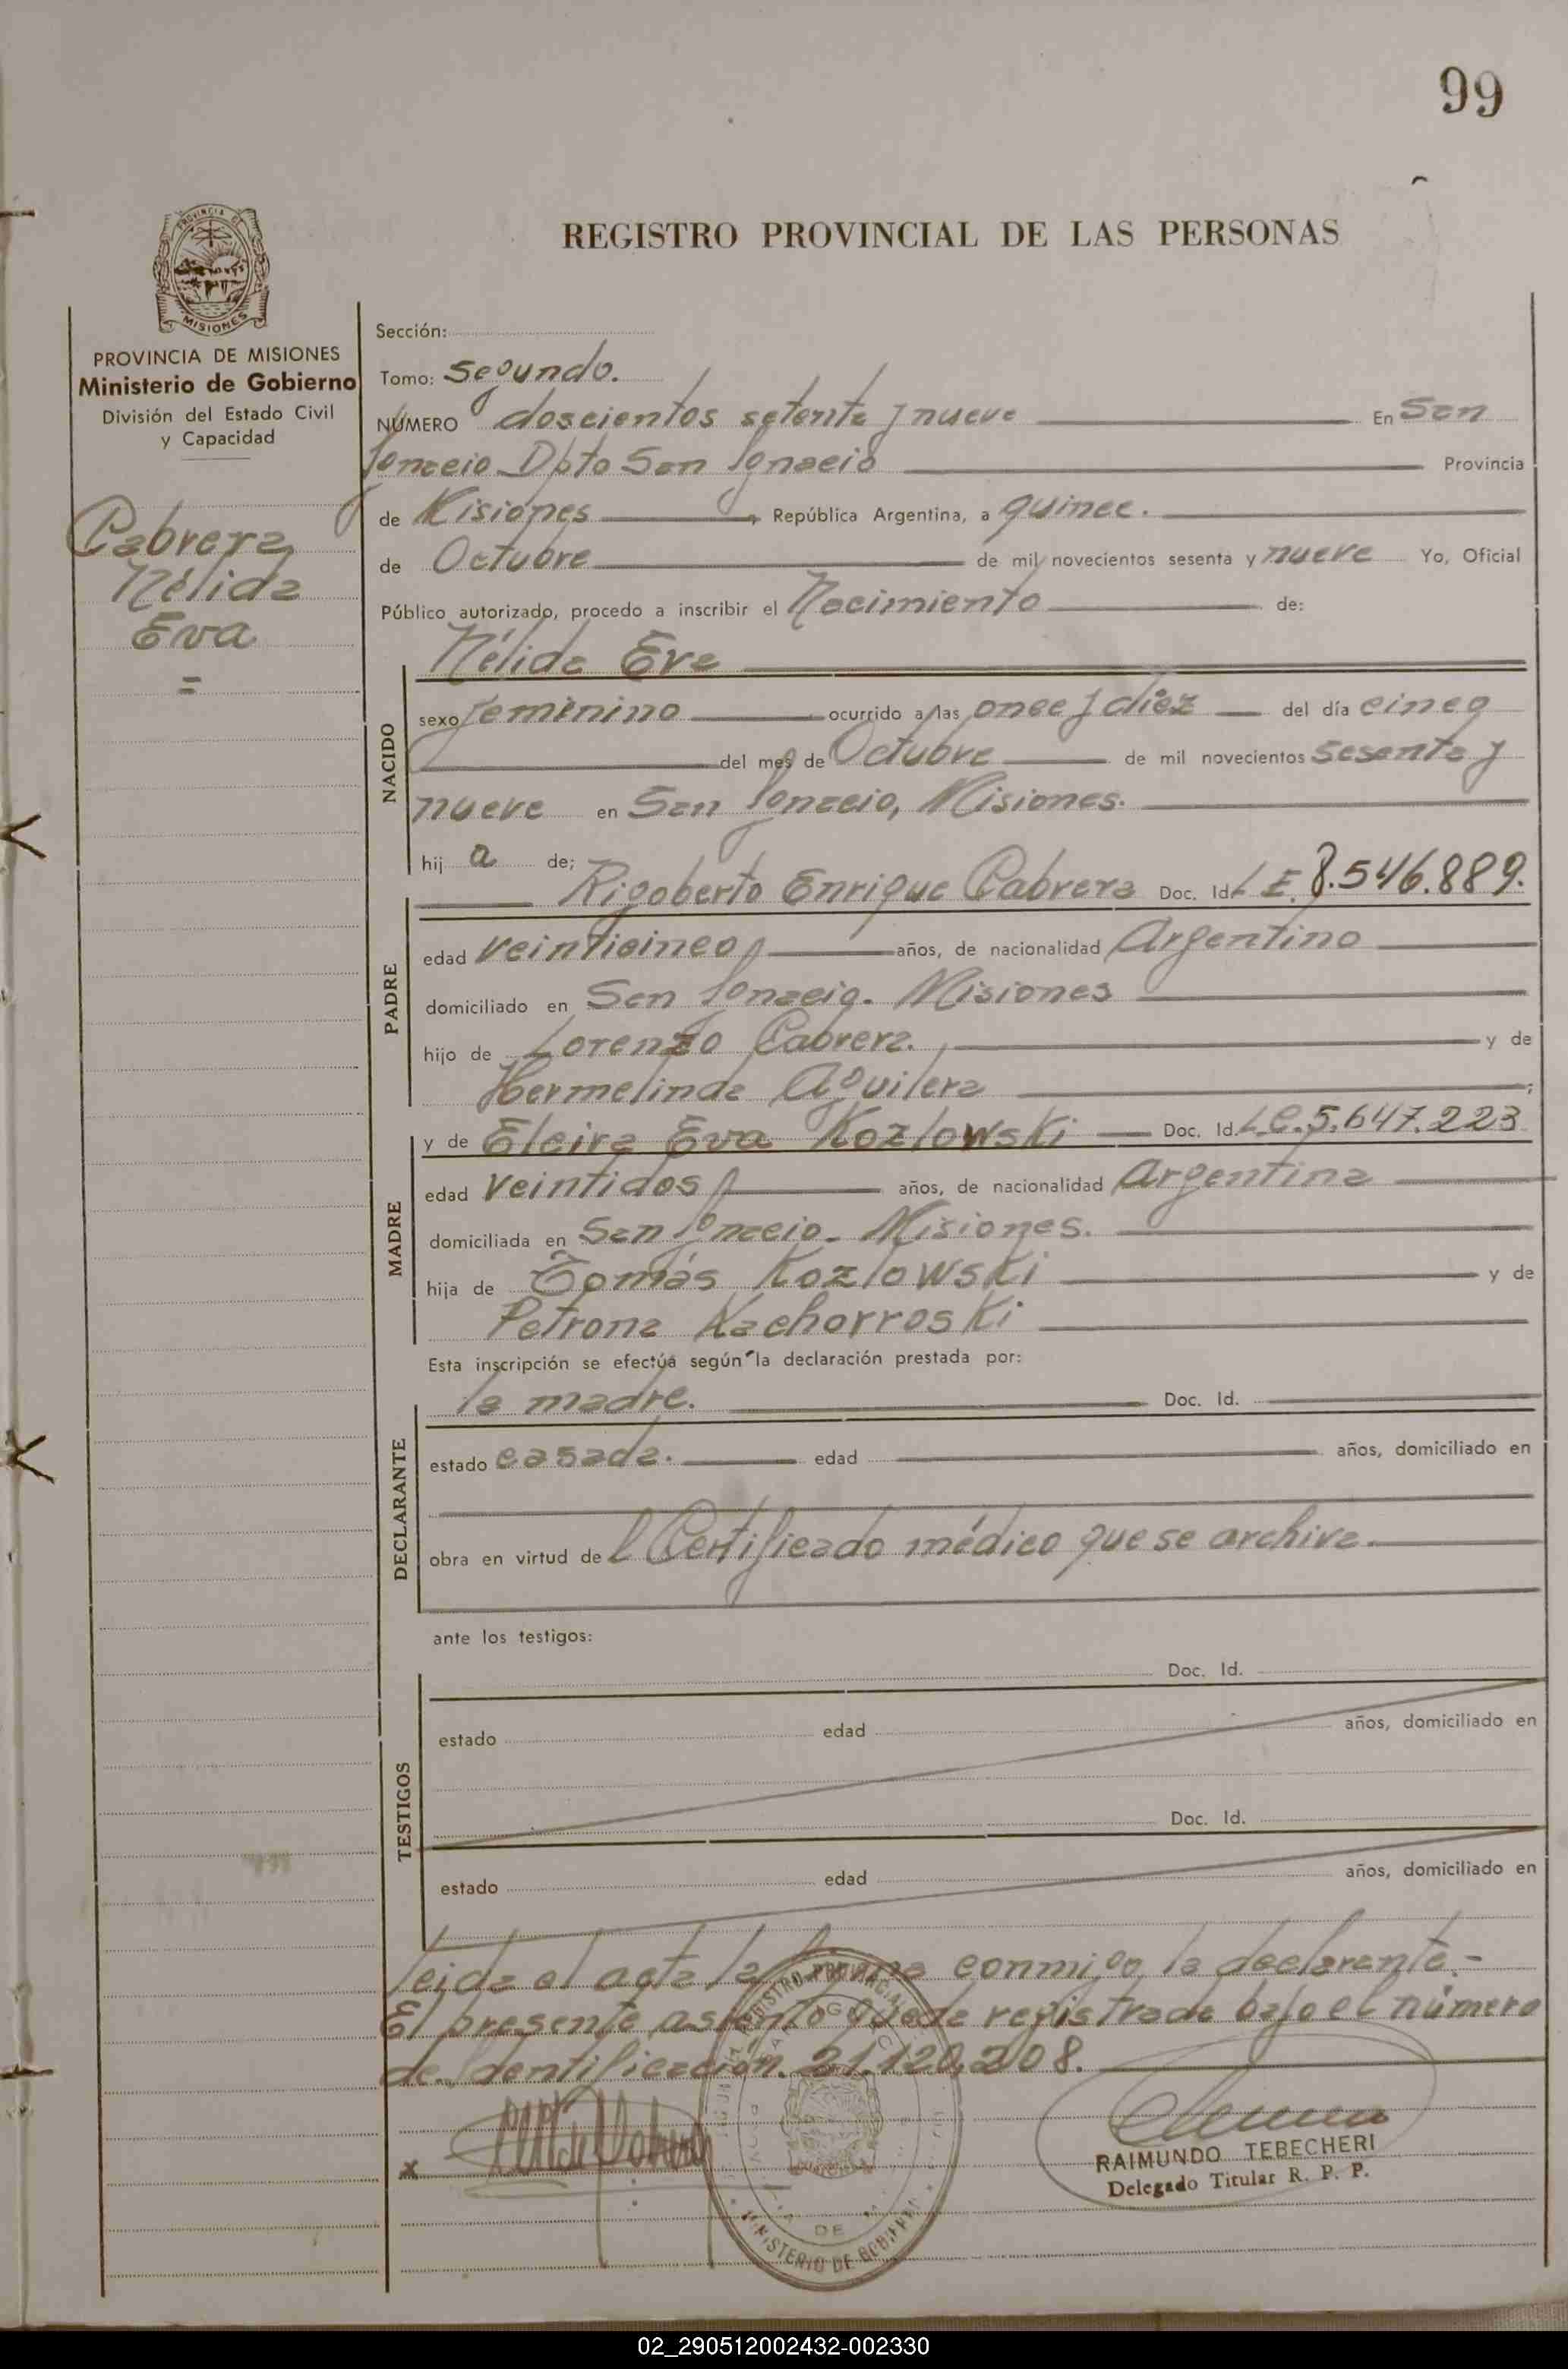 99
REGISTRO PROVINCIAL DE LAS PERSONAS
PROVINCIA DE MISIONES
Ministerio de Gobierno
División del Estado Civil
y Capacidad
Cabrera
Nélida
Eva
=
Sección:
Tomo: Segundo.
NÚMERO doscientos setenta y nueve En San
Ignacio Dpto San Ignacio Provincia
de Misiones, República Argentina, a quince.
de Octubre de mil novecientos sesenta y nueve Yo, Oficial
Público autorizado, procedo a inscribir el Nacimiento de:
NACIDO
Nélida Eva
sexo femenino ocurrido a las once y diez del día cinco
del mes de Octubre de mil novecientos sesenta y
nueve en San Ignacio, Misiones.
hij a de;
PADRE
Rigoberto Enrique Cabrera Doc. Id. L E. 8.546.889.
edad veinticinco años, de nacionalidad Argentino
domiciliado en San Ignacio. Misiones
hijo de Lorenzo Cabrera. y de
Hermelinda Aguilera ;
MADRE
y de Elcira Eva Kozlowski Doc. Id. L.C. 5.647.223
edad veintidos años, de nacionalidad Argentina
domiciliada en San Ignacio. Misiones.
hija de Tomás Kozlowski y de
Petrona Kachorroski
Esta inscripción se efectúa según la declaración prestada por:
DECLARANTE
la madre. Doc. Id.
estado casada. edad años, domiciliado en
obra en virtud de l Certificado médico que se archiva.
ante los testigos:
TESTIGOS
Doc. Id.
estado edad años, domiciliado en
Doc. Id.
estado edad años, domiciliado en
Leida el acta la firma conmigo, la declarante.-
El presente asiento queda registrado bajo el número
de Identificación. 21.120,208.
x
RAIMUNDO TEBECHERI
Delegado Titular R. P. P.
REGISTRO PROVINCIAL
DE
MINISTERIO DE GOBIERNO
PROVINCIA DE
MISIONES
02_290512002432-002330